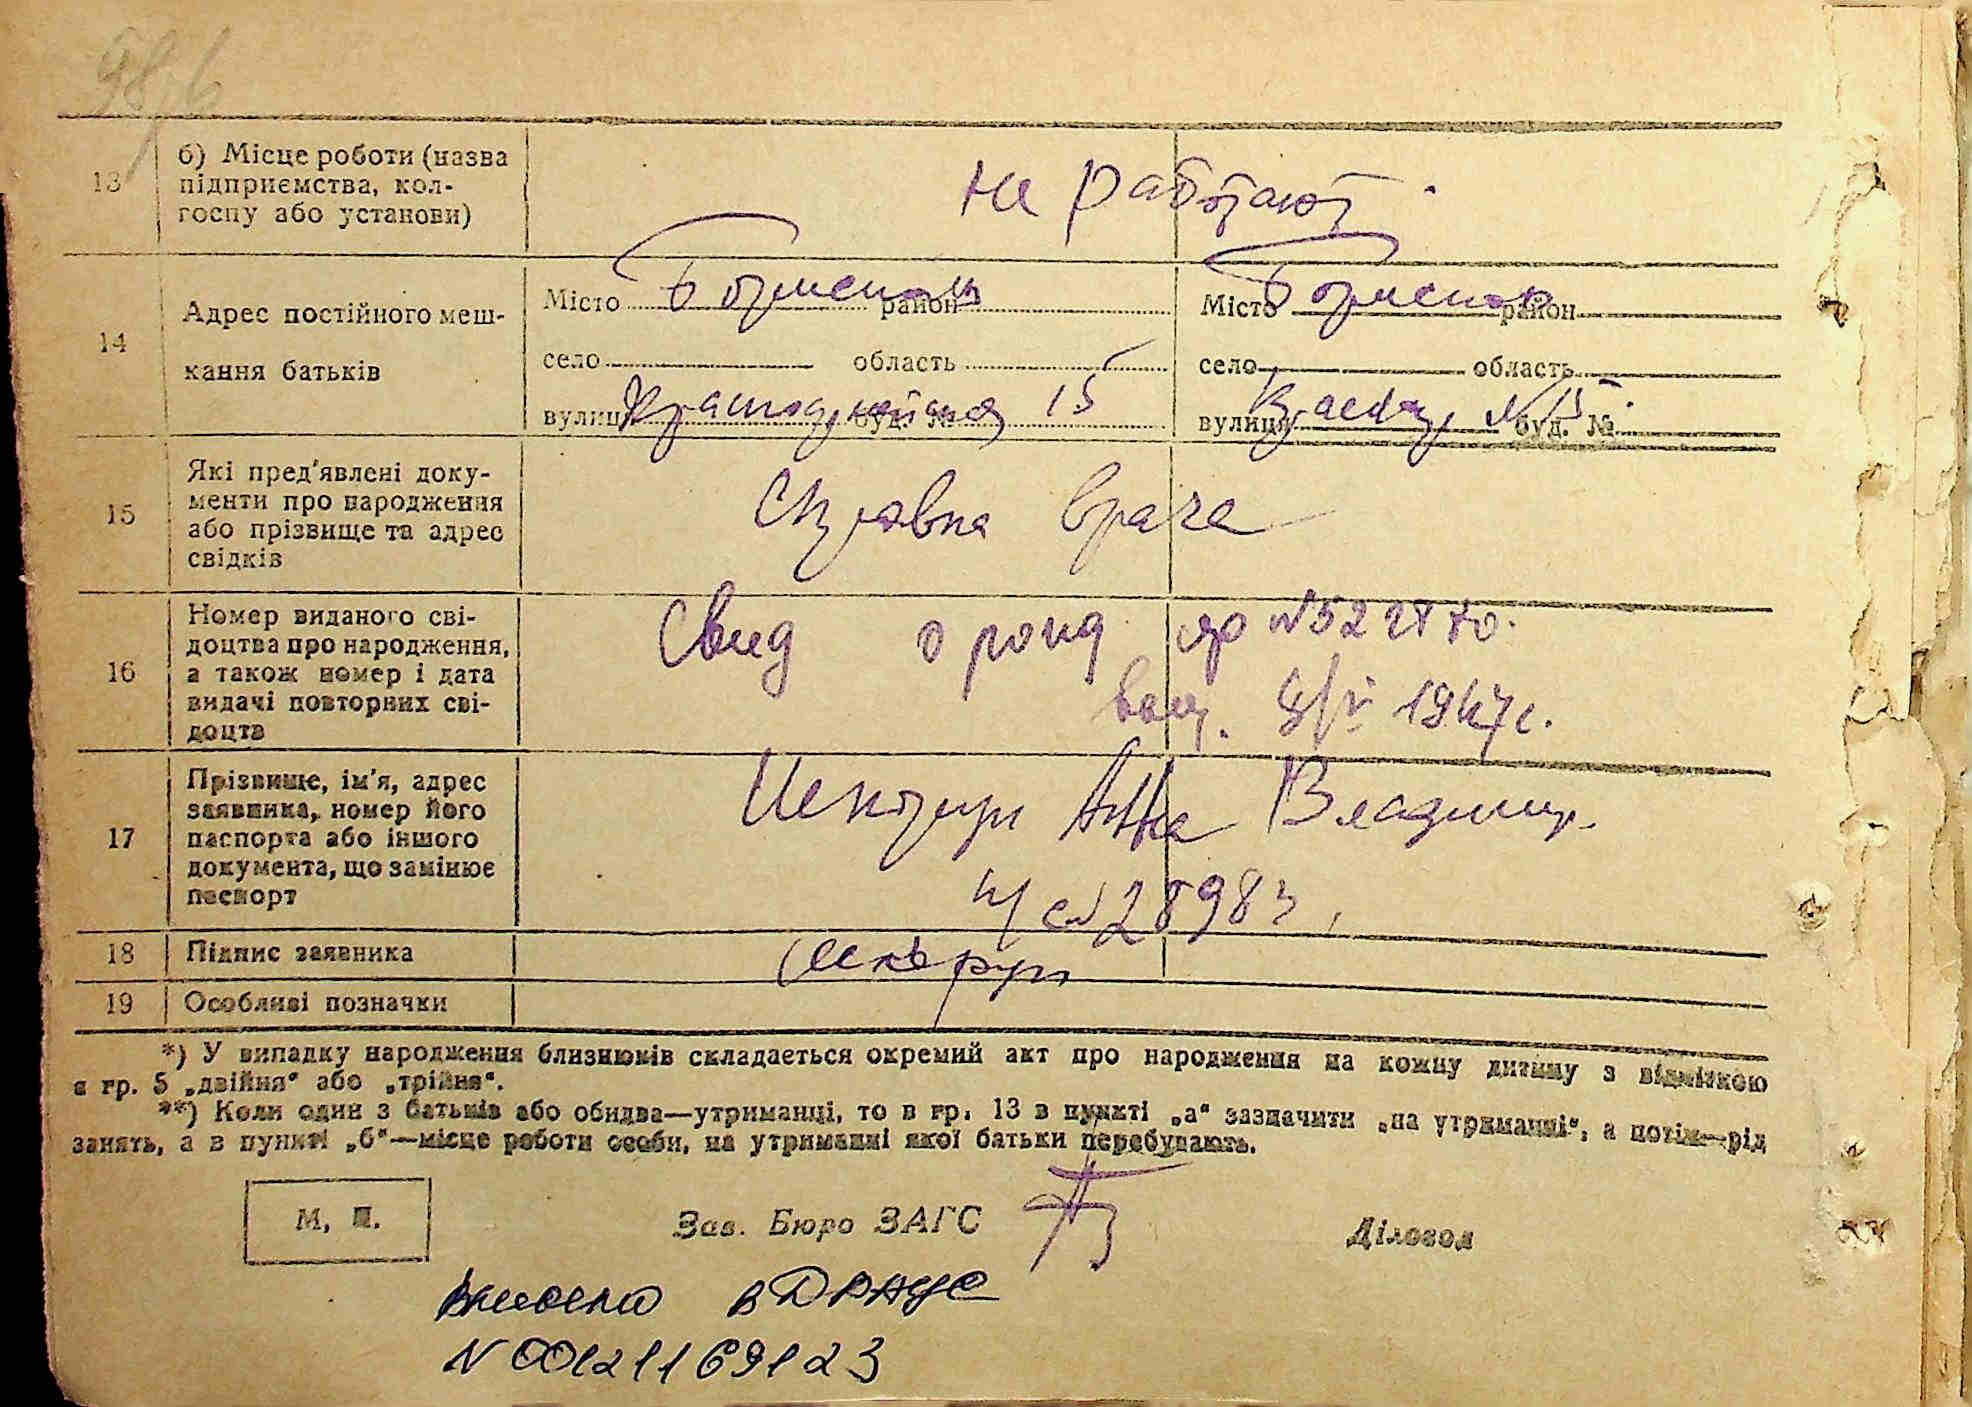 13
б) Місце роботи (назва
підприємства, кол-
госпу або установи)
не работают
14
Адрес постійного меш-
кання батьків
Місто район
село область
вулиця буд. № 15
Місто район
село область
вулиця буд. № 15
15
Які пред'явлені доку-
менти про народження
або прізвище та адрес
свідків
Справка врача
16
Номер виданого сві-
доцтва про народження,
а також номер і дата
видачі повторних сві-
доцтв
Свид о рожд
1947г.
17
Прізвище, ім'я, адрес
заявника, номер його
паспорта або іншого
документа, що замінює
паспорт
Анна Владимир.
18
Підпис заявника
19
Особливі позначки
*) У випадку народження близнюків складається окремий акт про народження на кожну дитину з відміткою
в гр. 5 „двійня" або „трійня".
**) Коли один з батьків або обидва—утриманці, то в гр. 13 в пункті „а" зазначити „на утриманні", а потім—рід
занять, а в пункті „б"—місце роботи особи, на утриманні якої батьки перебувають.
М. П.
Зав. Бюро ЗАГС
Діловод
Внесено в ДРАЦС
N 00121169123